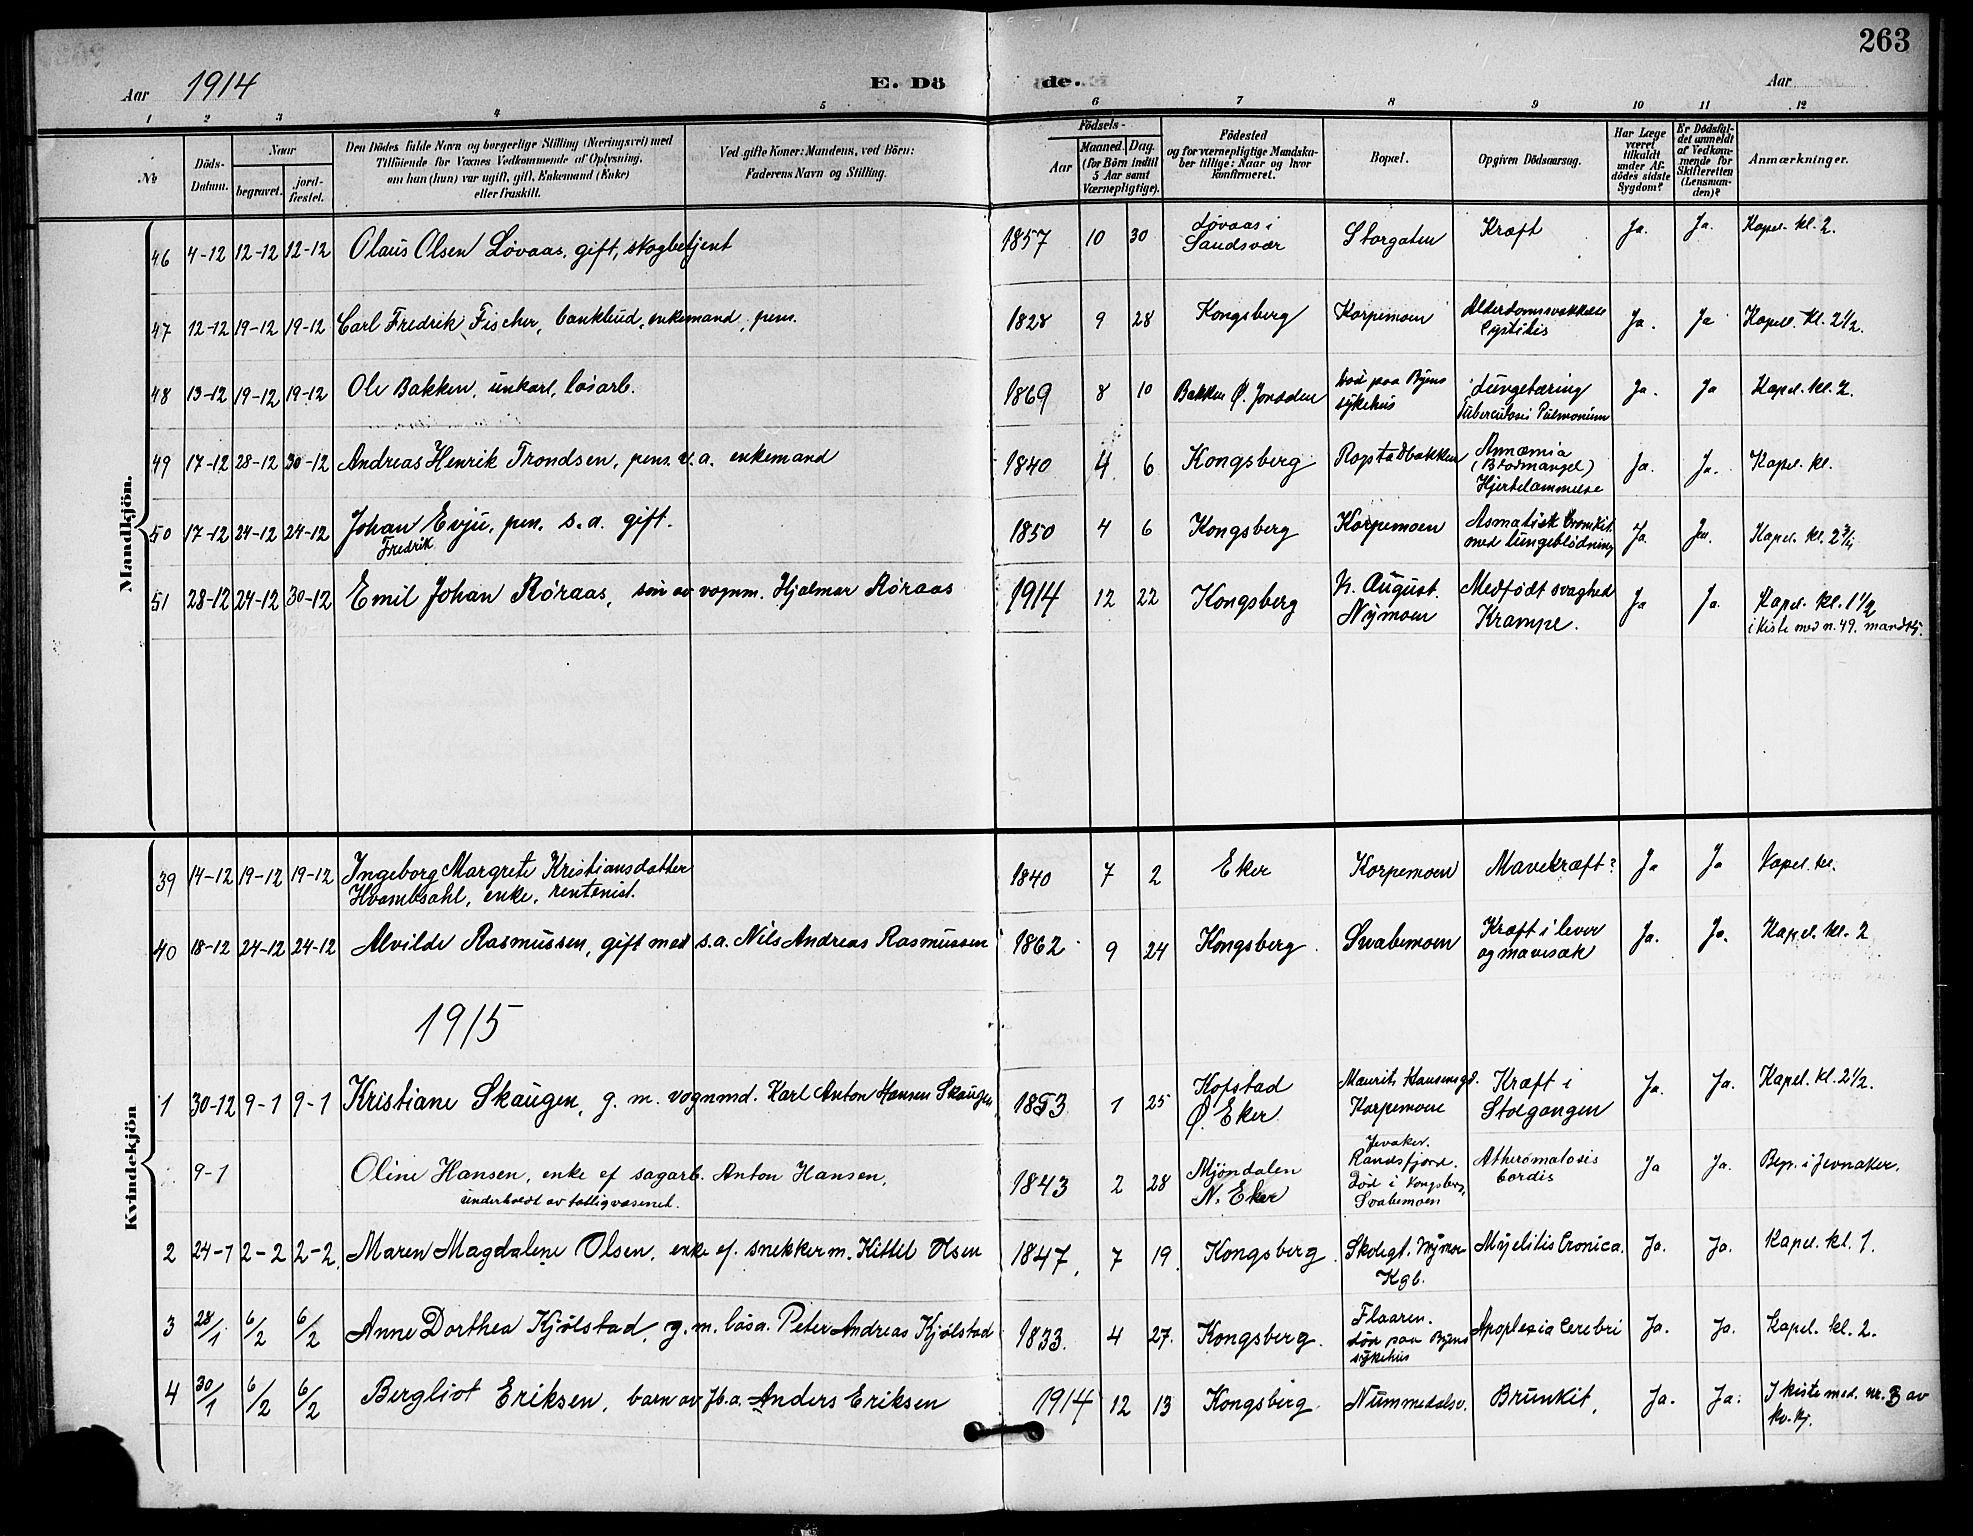 263
Aar 1914 E. Döde. Aar
1 2 3 4 5 6 7 8 9 10 11 12
No
Döds-Datum.
Naar
begravet.
jord-fæstet.
Den Dödes fulde Navn og borgerlige Stilling (Næringsvei) med
Tilföiende for Voxnes Vedkommende af Oplysning,
om han (hun) var ugift, gift, Enkemand (Enke)
eller fraskilt.
Ved gifte Koner: Mandens, ved Börn:
Faderens Navn og Stilling.
Födsels-
Aar
Maaned. Dag.
(for Börn indtil
5 Aar samt
Værnepligtige).
Födested
og for værnepligtige Mandska-
ber tillige: Naar og hvor
konfirmeret.
Bopæl.
Opgiven Dödsaarsag.
Har Læge
været
tilkaldt
under Af-
dödes sidste
Sygdom?
Er Dödsfal-
det anmeldt
af Vedkom-
mende for
Skifteretten
(Lensman-
den)?
Anmærkninger.
Mandkjön.
46 4-12 12-12 12-12 Olaus Olsen Løvaas, gift, skogbetjent 1857 10 30 Løvaas i Sandsvær Storgaten Kræft Ja. Ja. Kapel. kl. 2.
47 12-12 19-12 19-12 Carl Fredrik Fischer, bankbud, enkemand, pens. 1828 9 28 Kongsberg Korpemoen Alderdomssvækkelse Cystitis Ja. Ja Kapel. kl. 2 1/2.
48 13-12 19-12 19-12 Ole Bakken, unkarl, løsarb. 1869 8 10 Bakken Ø. Jondalen død paa Byens sykehus Lungetæring Tuberculosis Pulmonum Ja. Ja Kapel. kl. 2.
49 17-12 28-12 30-12 Andreas Henrik Trondsen, pens. v.a. enkemand 1840 4 6 Kongsberg Rogstadbakken Annæmia (Blodmangel) Hjertelammelse Ja. Ja. Kapel. kl.
50 17-12 24-12 24-12 Johan Evju, pen. s.a. gift. 1850 4 6 Kongsberg Korpemoen Asmatisk bronkit. med lungeblødning Ja. Ja. Kapel. kl. 2 3/4
Fredrik
51 28-12 24-12 30-12 Emil Johan Røraas, søn av vognm. Hjalmar Røraas 1914 12 22 Kongsberg K. August. Nymoen Medfødt svaghed Krampe. Ja Ja. Kapel. kl. 1 1/2
i kiste med n. 49. mandkj.
Kvindekjön
39 14-12 19-12 19-12 Ingeborg Margrete Kristiansdatter 1840 7 2 Eker Korpemoen Mavekræft? Ja Ja Kapel. kl.
Hvambsahl, enke, rentenist.
40 18-12 24-12 24-12 Alvilde Rasmussen, gift med s.a. Nils Andreas Rasmussen 1862 9 24 Kongsberg Svabemoen Kræft i lever og mavesæk Ja. Ja. Kapel. kl. 2
1915
1 30-12 9-1 9-1 Kristiane Skaugen, g. m. vognmd. Karl Anton Hansen Skaugen 1853 1 25 Kopstad Ø. Eker Maurits Hansensgd. Korpemoen Kræft i Stolgangen Ja. Ja. Kapel. kl. 2 1/2.
9-1 Oline Hansen, enke ef sagarb. Anton Hansen, 1843 2 28 Mjøndalen N. Eker Jevaker. Randsfjord. Død i Kongsberg, Svabemoen Atheromatosis Cordis Ja Ja. Begr. i Jevnaker.
underholdt av fattigvæsenet.
2 24-1 2-2 2-2. Maren Magdalene Olsen, enke ef. snekkerm. Kittil Olsen 1847, 7 19. Kongsberg Skolegt. Nymoen Kgb. Myelitis Cronica. Ja. Ja. Kapel. kl. 1.
3 28/1 6/2 6/2 Anne Dorthea Kjølstad, g. m. løsa. Peter Andreas Kjølstad 1833. 4 27. Kongsberg. Flaaren. død paa Byens sykehus Apoplexia Cerebri Ja. Ja. Kapel. kl. 2.
4 30/1 6/2 6/2 Bergliot Eriksen, barn av Jb.a. Anders Eriksen 1914 12 13 Kongsberg. Nummedalsv. Brunkit, Ja. Ja. I kiste med. nr. 3 av
kv. kj.